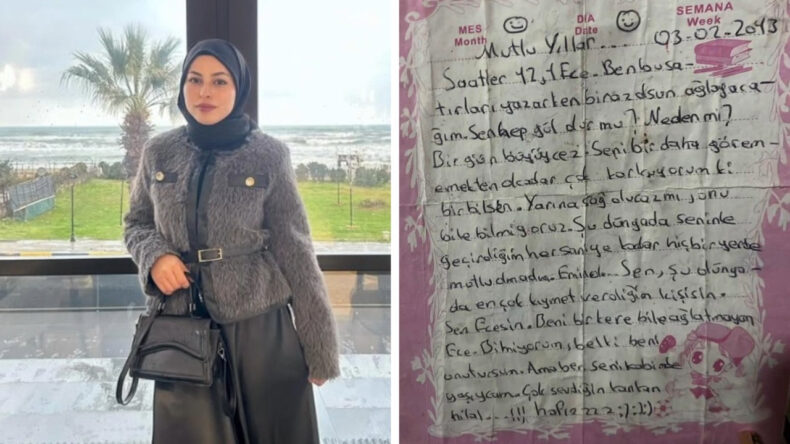 MES
Month
DIA
Date
SEMANA
Week
Mutlu Yıllar...
03-02-2013
Saatler 12,1 Ece. Ben bu sa-
tırları yazarken biraz dsun ağlayaca-
ğım. Sen hep gül dur mu? Neden mi?
Bir gün büyüycez. Seni bir daha görem-
emekten o kadar çok korkuyorum ki
bir bilsen. Yarına sağ olucaz mı şunu
bile bilmiyoruz. Şu dünyada seninle
geçirdiğim her saniye kadar hiçbir yerde
mutlu olmadım. Emin ol. Sen, şu dünya-
da en çok kıymet verdiğim kişisin.
Sen Ecesin. Beni bir kere bile ağlatmayan
Ece. Bilmiyorum, belki beni
unutursun. Ama ben seni kalbimde
yaşıycam. Çok sevdiğin kankan
hilal...!!!